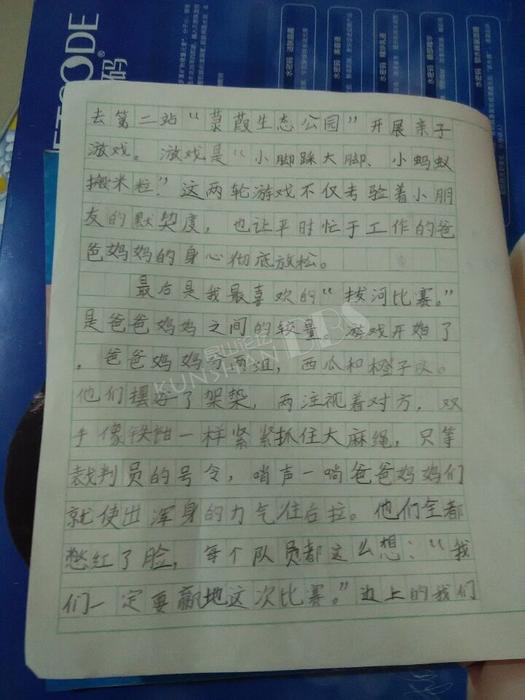 去第二站“菉葭生态公园”开展亲子
游戏。游戏是“小脚踩大脚、小蚂蚁
搬米粒”这两轮游戏不仅考验着小朋
友的默契度，也让平时忙于工作的爸
爸妈妈的身心彻底放松。
最后是我最喜欢的“拔河比赛。”
是爸爸妈妈之间的较量 游戏开始了
，爸爸妈妈分两组，西瓜和橙子队。
他们摆好了架势，两注视着对方，双
手像铁钳一样紧紧抓住大麻绳，只等
裁判员的号令，哨声一响爸爸妈妈们
就使出浑身的力气往后拉。他们全都
憋红了脸，每个队员都这么想：“我
们一定要赢地这次比赛。”边上的我们
CODE
码
KUNSHAN